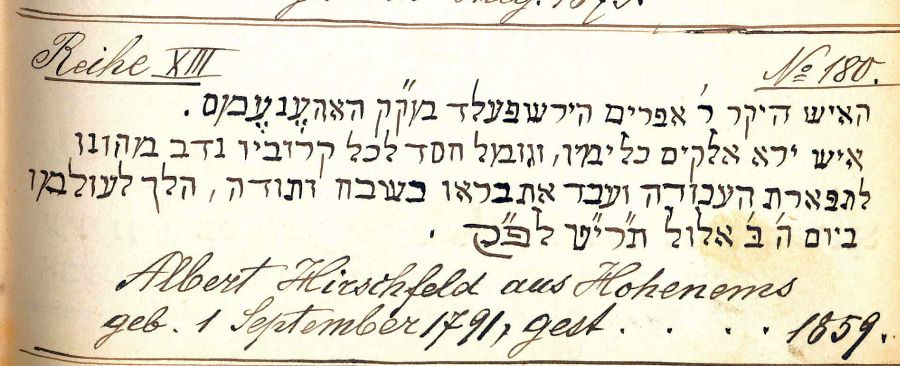 Reihe XIII No 180.
האיש היקר ר' אפרים הירשפעלד מק"ק האהענעמס.
איש ירא אלקים כל ימיו, וגומל חסד לכל קרוביו נדב מהונו
לתפארת העבודה ועבד את בראו בשבח ותודה, הלך לעולמו
ביום ה' ב' אלול תרי"ט לפ"ק.
Albert Hirschfeld aus Hohenems
geb. 1 September 1791, gest . . . . 1859.